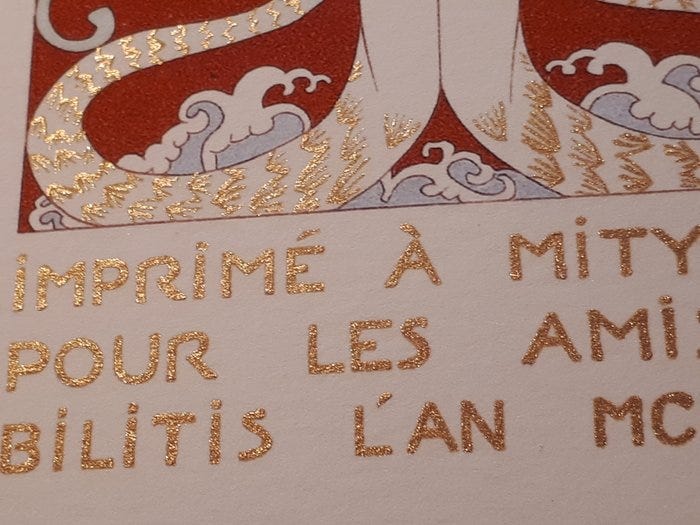 iMPRiMÉ À MiTY
POUR LES AMiS
BiLiTiS L'AN MC